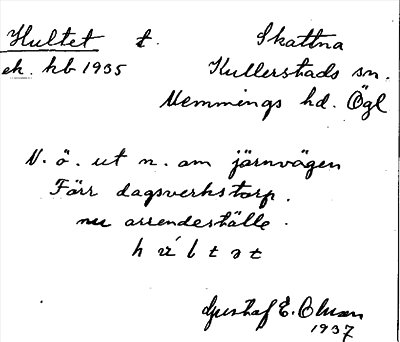 Hultet t. Skattna
ek. hb 1935 Kullerstads sn.
Memmings hd. Ögl
N. ö. ut n. om järnvägen
Förr dagsverkstorp.
nu arrendeställe.
Gustaf E. Olsson
1937